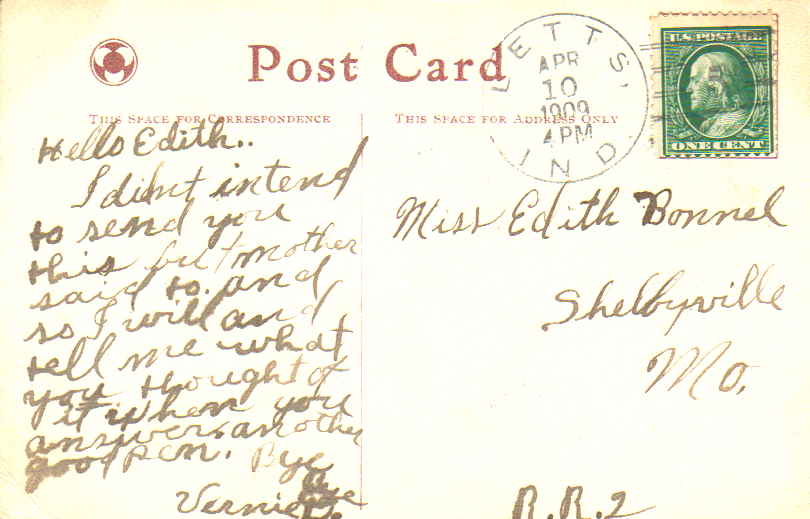 Post Card
THIS SPACE FOR CORRESPONDENCE
THIS SPACE FOR ADDRESS ONLY
LETTS,
APR
10
1909
4 PM
IND.
U.S. POSTAGE
ONE CENT
Hello Edith..
I didnt intend
to send you
this but mother
said to. and
so I will and
tell me what
you thought of
it when you
answer. another
good pen. Bye
Vernie
Miss Edith Bonnel
Shelbyville
Mo.
R.R.2